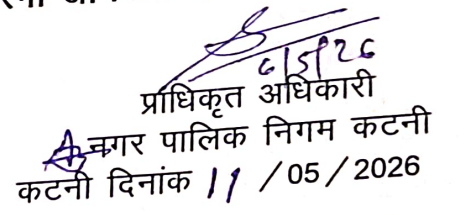 6/5/26
प्राधिकृत अधिकारी
नगर पालिक निगम कटनी
कटनी दिनांक 11 /05/2026